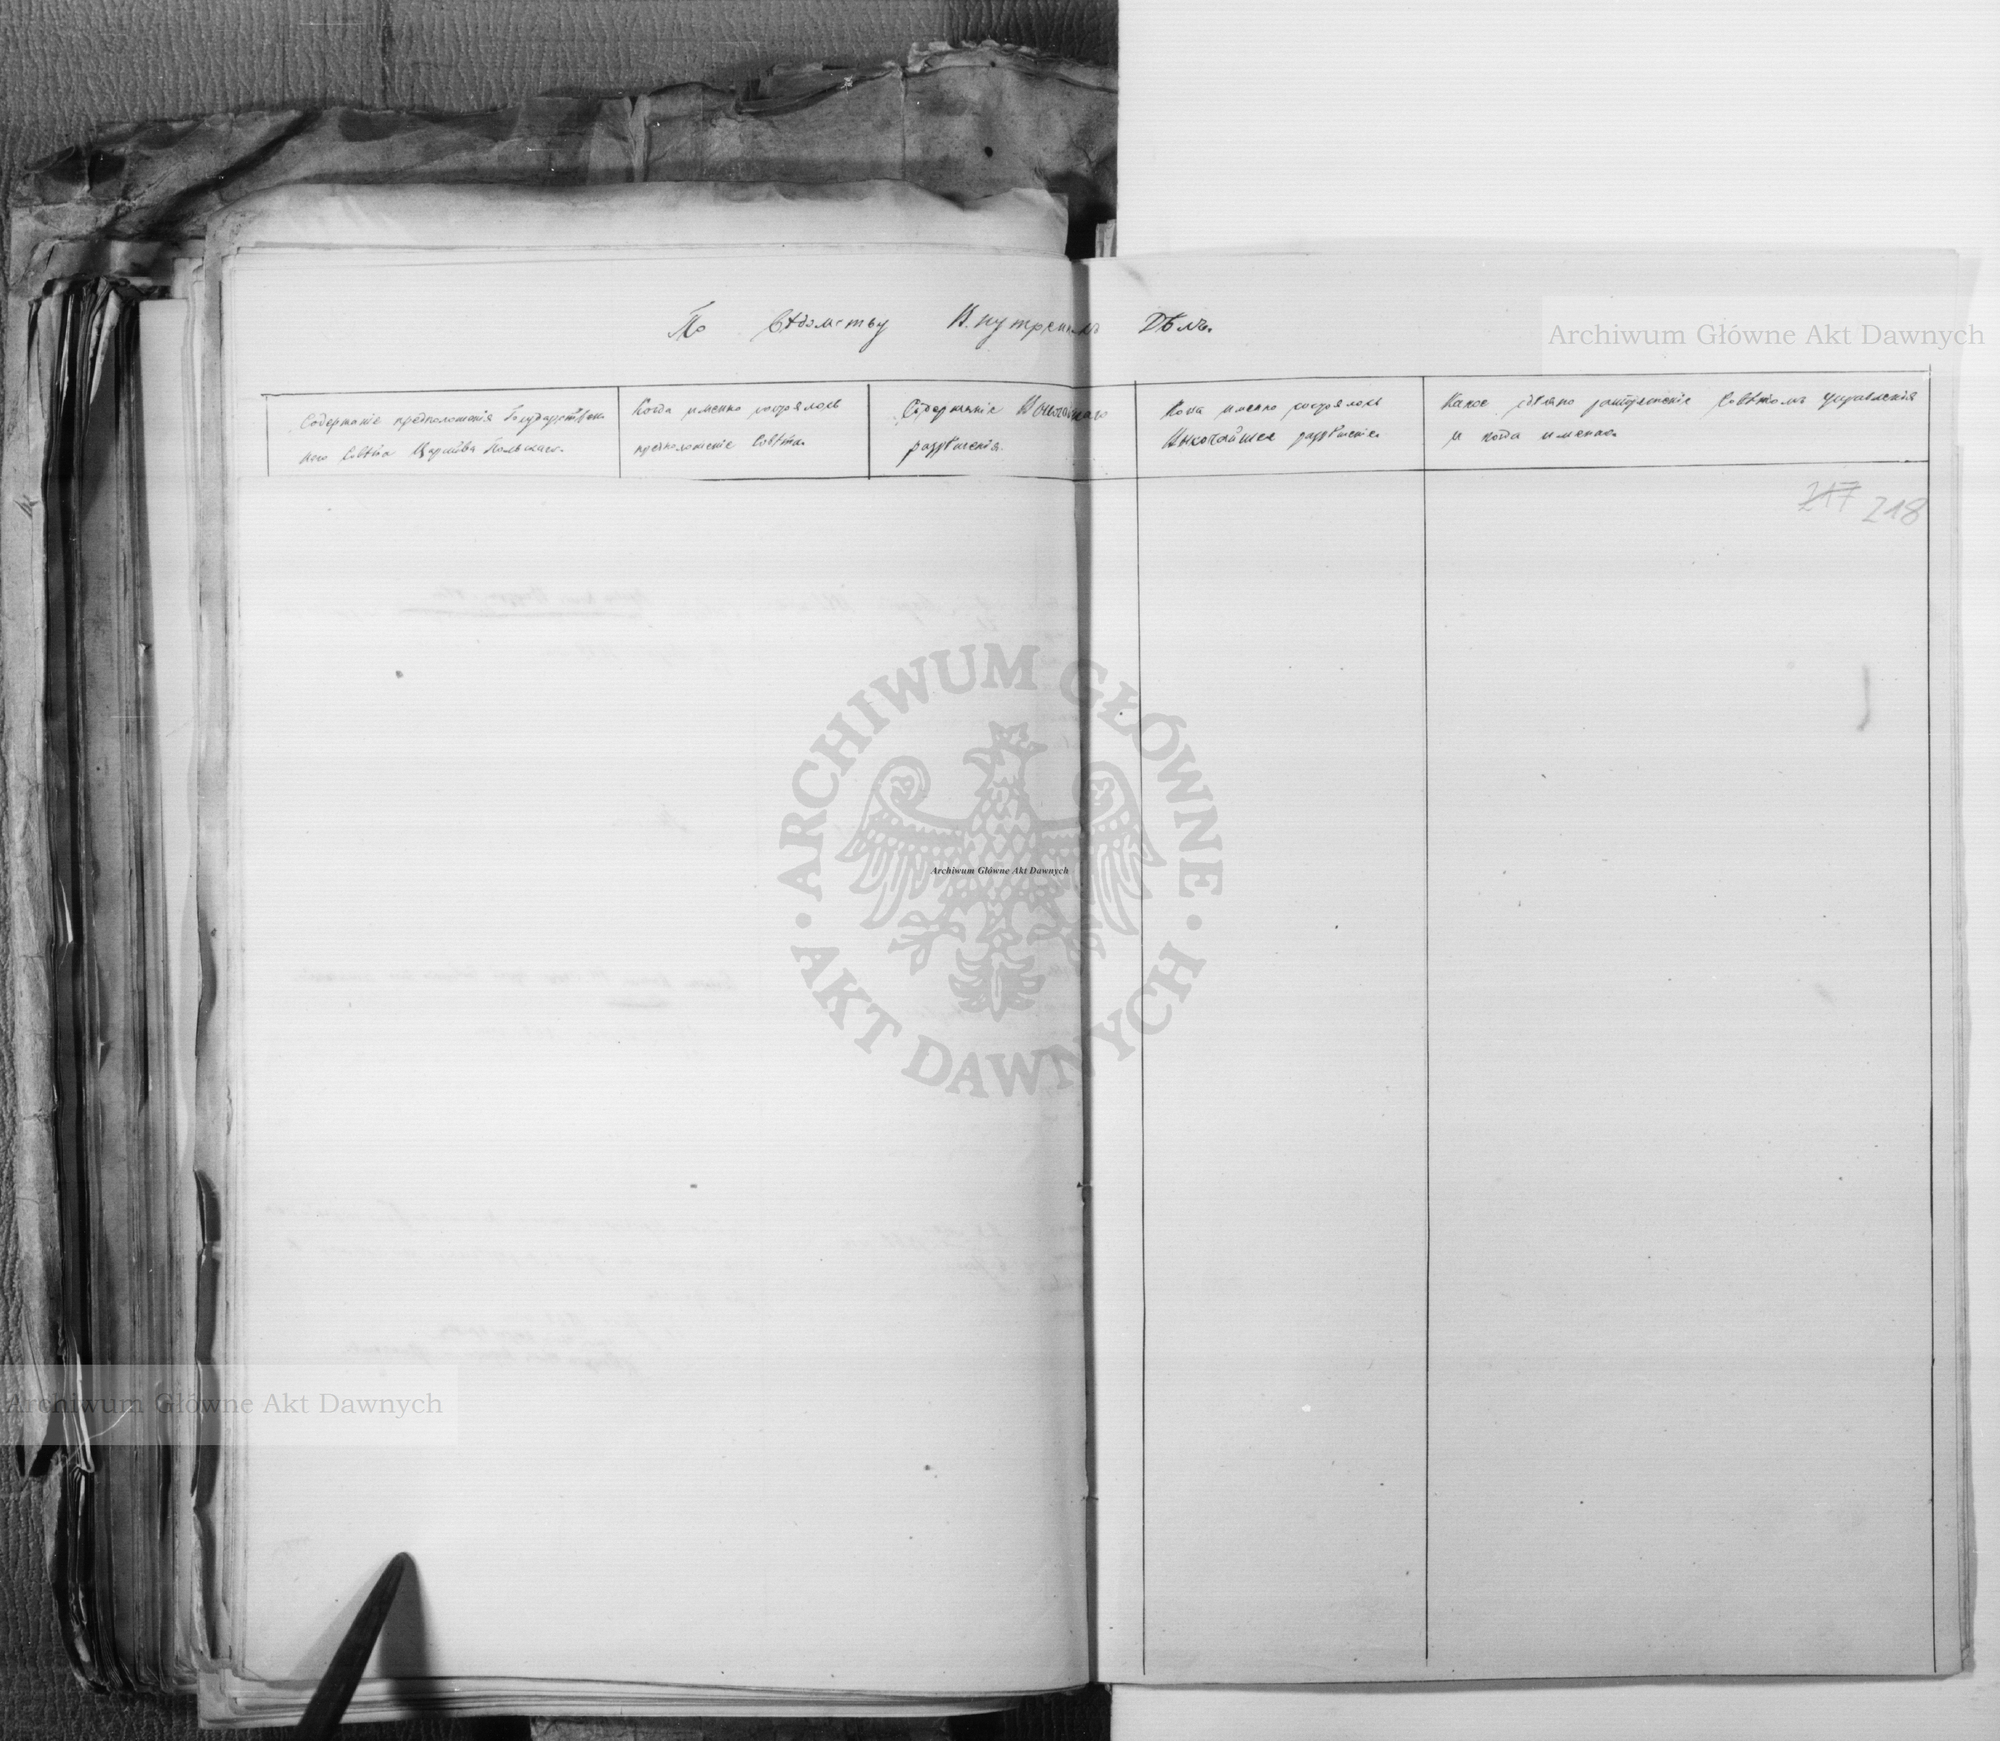 По вѣдомству Внутреннихъ Дѣлъ.
Archiwum Główne Akt Dawnych
Содержаніе предположенія Государствен-
наго Совѣта Царства Польскаго.
Когда именно состоялось
предположеніе Совѣта.
Содержаніе Высочайшаго
разрѣшенія.
Когда именно состоялось
Высочайшее разрѣшеніе.
Какое сдѣлано Совѣтомъ Управленія
и когда именно.
217 218
ARCHIWUM GŁÓWNE
AKT DAWNYCH
Archiwum Główne Akt Dawnych
Archiwum Główne Akt Dawnych